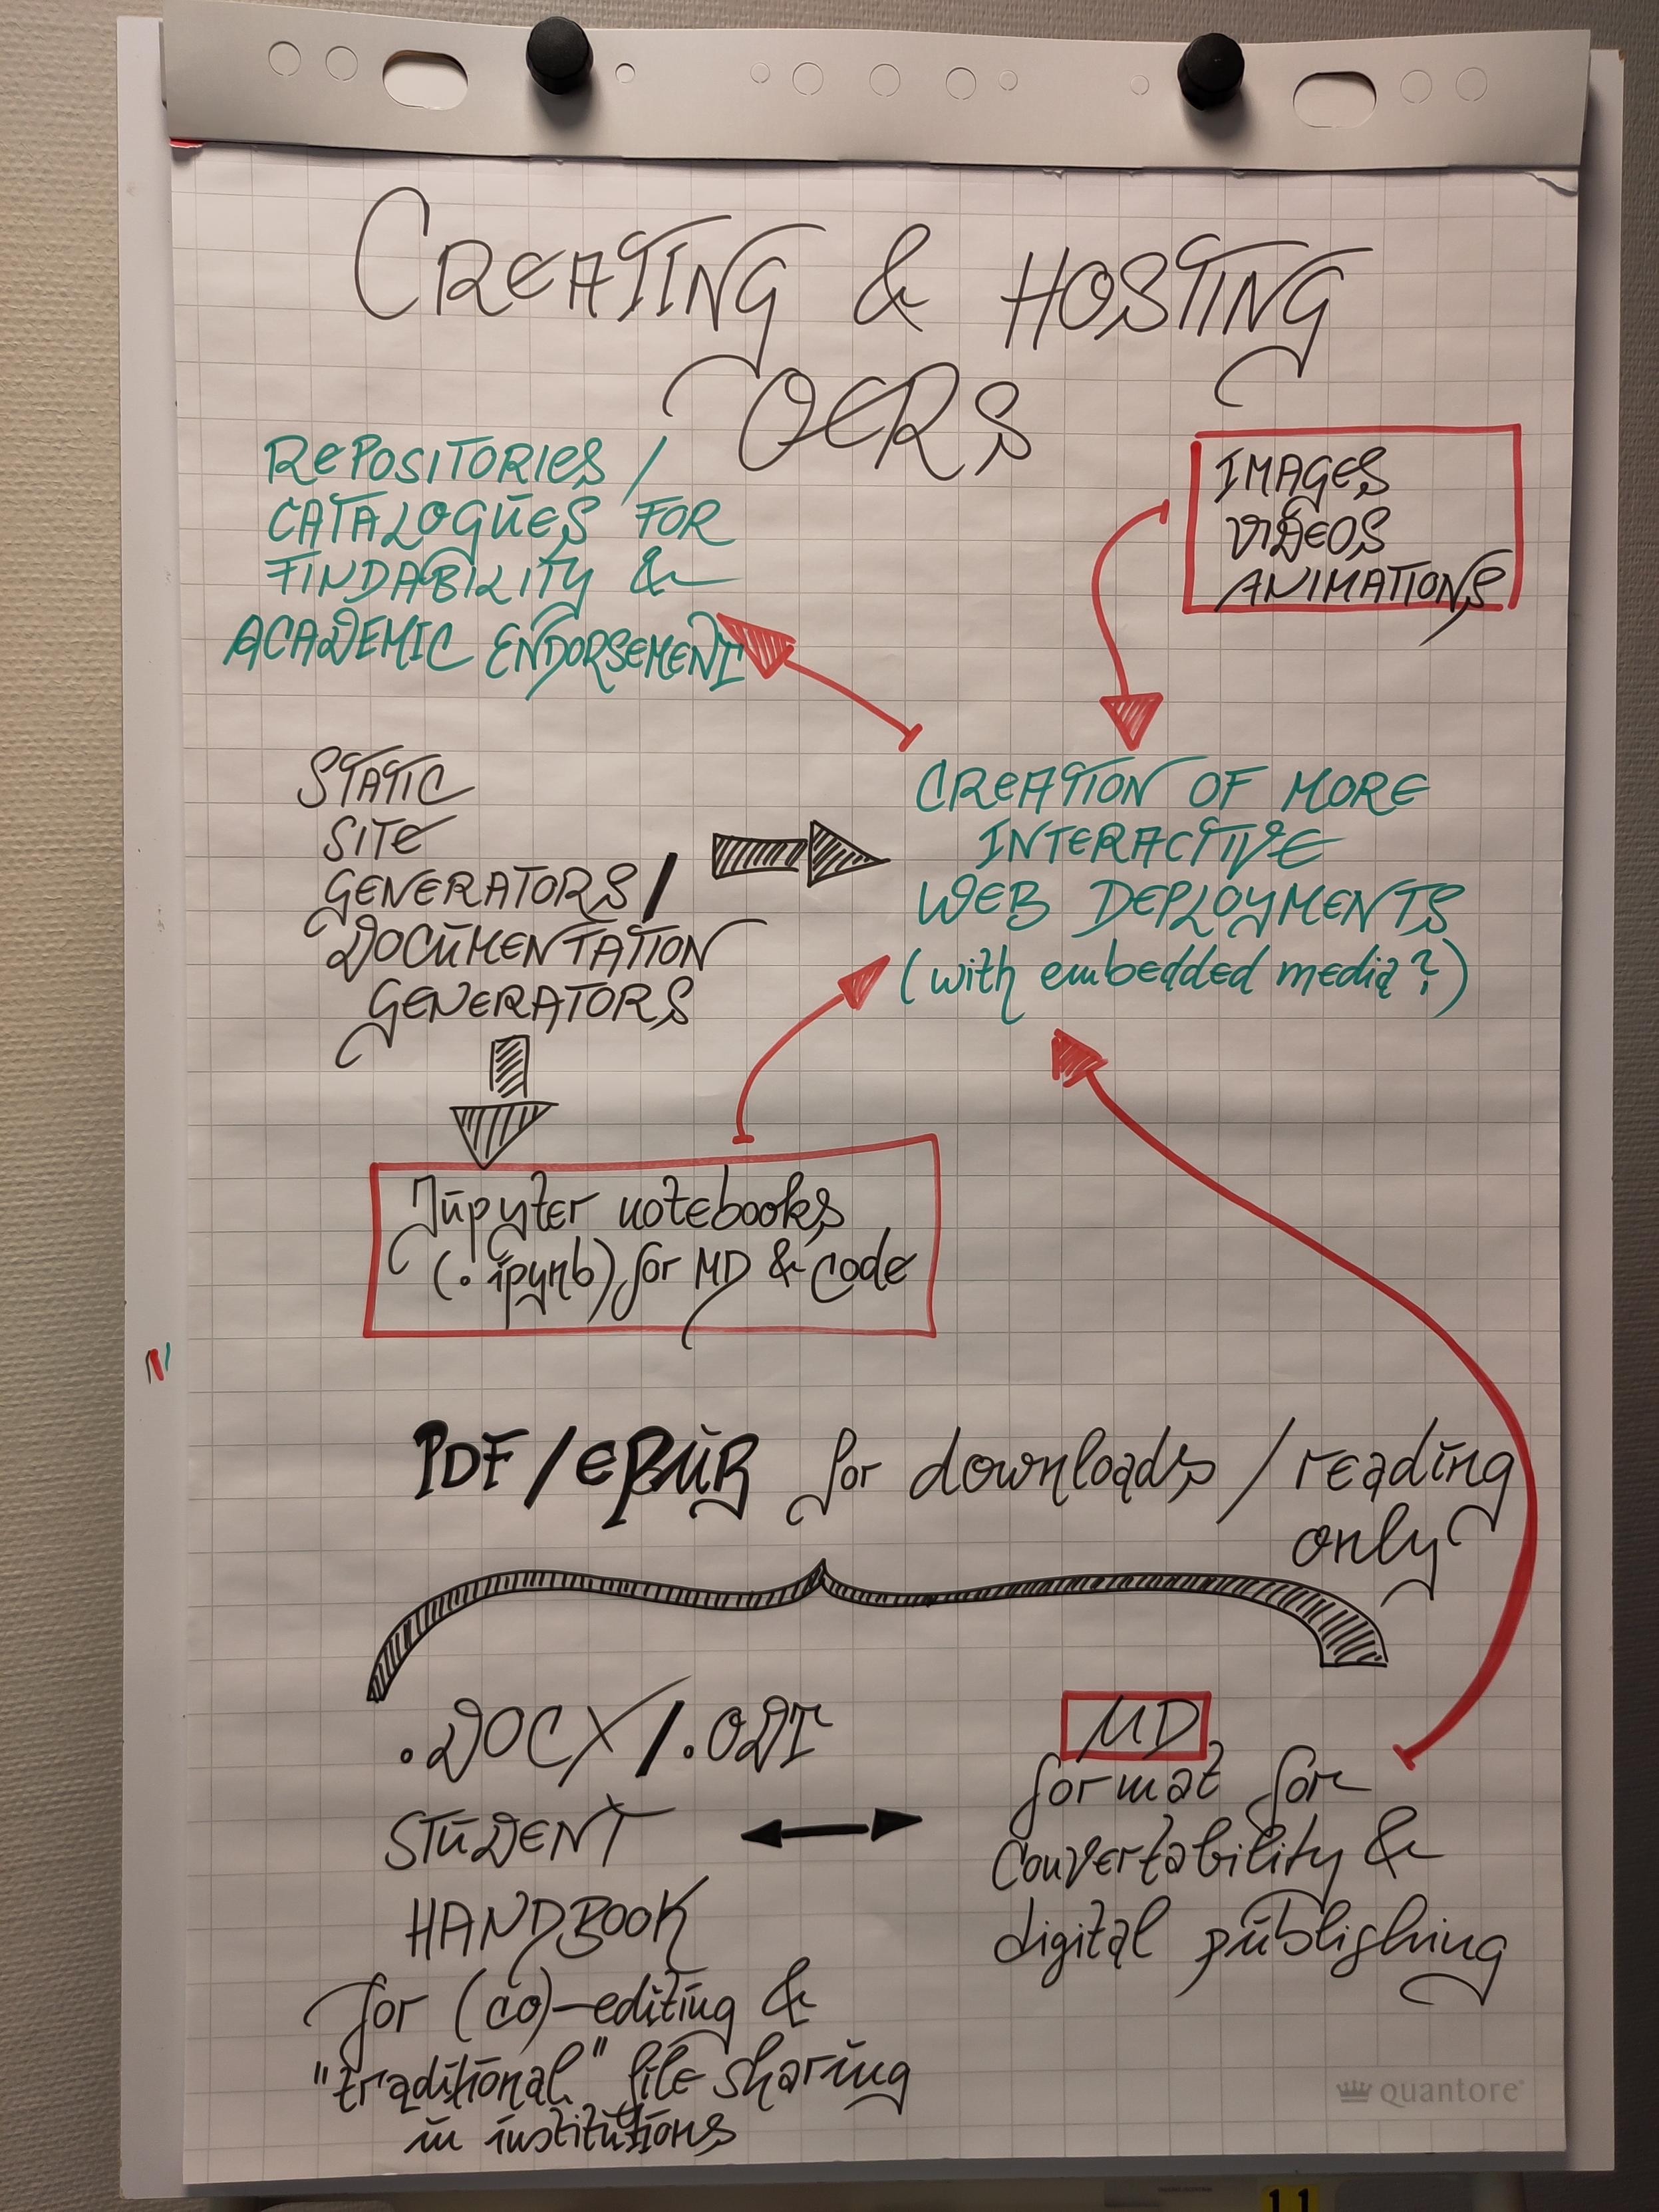 CREATING & HOSTING
OERS
REPOSITORIES /
CATALOGUES FOR
FINDABILITY &
ACADEMIC ENDORSEMENT
IMAGES
VIDEOS
ANIMATIONS
STATIC
SITE
GENERATORS /
DOCUMENTATION
GENERATORS
CREATION OF MORE
INTERACTIVE
WEB DEPLOYMENTS
(with embedded media?)
Jupyter notebooks
(.ipynb) for MD & code
PDF/EPUB for downloads / reading
only
.DOCX/.ODT
STUDENT
HANDBOOK
for (co)-editing &
"traditional" file sharing
in institutions
MD
format for
convertability &
digital publishing
quantore
11